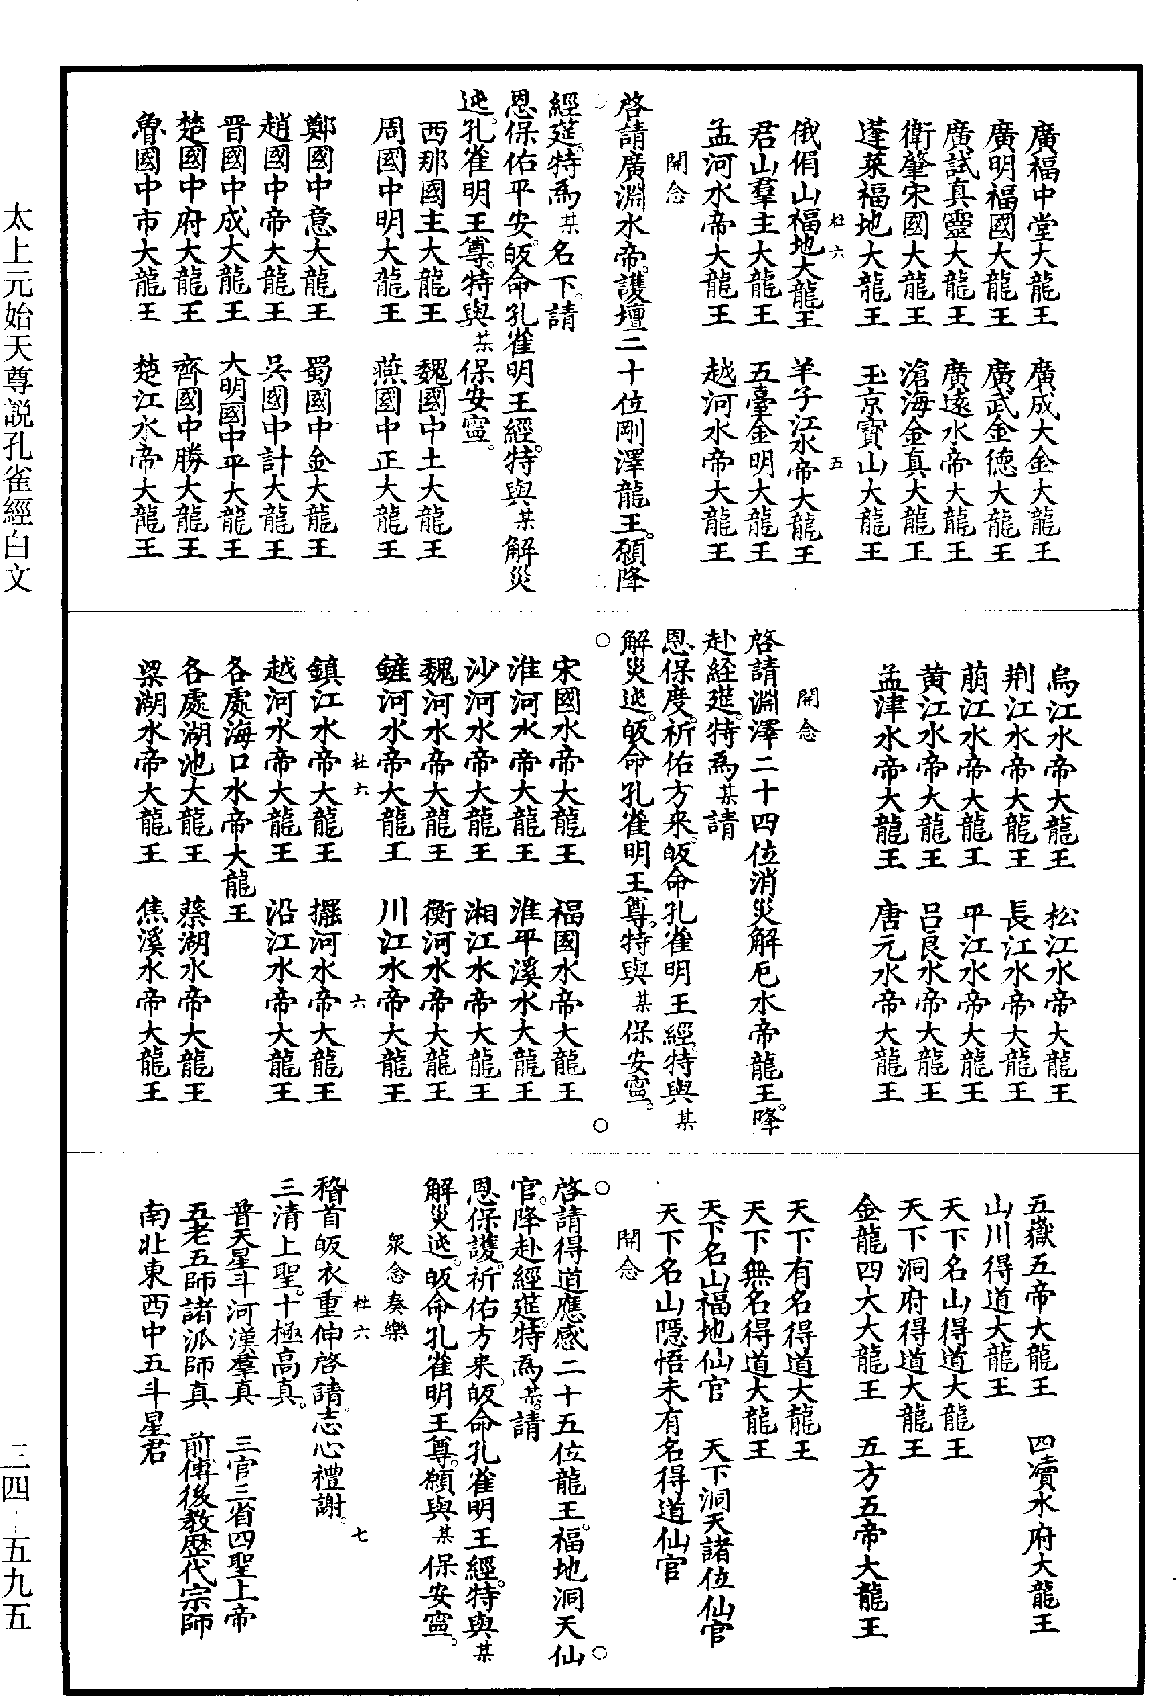 廣福中堂大龍王　廣成大金大龍王
廣明福國大龍王　廣武金德大龍王
廣試真靈大龍王　廣遠水帝大龍王
衛肇宋國大龍王　滄海金真大龍王
蓬萊福地大龍王　玉京寶山大龍王
杜六　五
俄倡山福地大龍王　羊子江水帝大龍王
君山羣主大龍王　五臺金明大龍王
孟河水帝大龍王　越河水帝大龍王
開念
啓請廣淵水帝。護壇二十位剛澤龍王。願降
經筵。特為某名下。請
恩保佑平安。皈命孔雀明王經。特與某解災
迍。孔雀明王尊。特與某保安寧。
西那國主大龍王　魏國中土大龍王
周國中明大龍王　燕國中正大龍王
鄭國中意大龍王　蜀國中金大龍王
趙國中帝大龍王　吳國中計大龍王
晋國中成大龍王　大明國中平大龍王
楚國中府大龍王　齊國中勝大龍王
魯國中市大龍王　楚江水帝大龍王
烏江水帝大龍王　松江水帝大龍王
荆江水帝大龍王　長江水帝大龍王
萠江水帝大龍王　平江水帝大龍王
黄江水帝大龍王　呂良水帝大龍王
孟津水帝大龍王　唐元水帝大龍王
開念
啓請淵澤二十四位消災解厄水帝龍王。降
赴経筵。特為某請
恩保度。祈佑方来。皈命孔雀明王經。特與某
解災迍。皈命孔雀明王尊。特與某保安寧。
宋國水帝大龍王　福國水帝大龍王
淮河水帝大龍王　淮平溪水大龍王
沙河水帝大龍王　湘江水帝大龍王
魏河水帝大龍王　衡河水帝大龍王
鏟河水帝大龍王　川江水帝大龍王
杜六　六
鎮江水帝大龍王　擺河水帝大龍王
越河水帝大龍王　沿江水帝大龍王
各處海口水帝大龍王
各處湖池大龍王　蔡湖水帝大龍王
梁湖水帝大龍王　焦溪水帝大龍王
五嶽五帝大龍王　四凟水府大龍王
山川得道大龍王
天下名山得道大龍王
天下洞府得道大龍王
金龍四大大龍王　五方五帝大龍王
天下有名得道大龍王
天下無名得道大龍王
天下名山福地仙官　天下洞天諸位仙官
天下名山隱悟未有名得道仙官
開念
啓請得道應感二十五位龍王。福地洞天仙
官。降赴經筵。特為某。請
恩保護。祈佑方来。皈命孔雀明王經。特與某
解災迍。皈命孔雀明王尊。願與某保安寧。
衆念奏樂
杜六　七
稽首皈衣。重伸啓請。志心禮謝。
三清上聖。十極高真。
普天星斗河漢羣真　三官三省四聖上帝
五老五師諸派師真　前傳後教歷代宗師
南北東西中五斗星君
太上元始天尊説孔雀經白文
三四－五九五